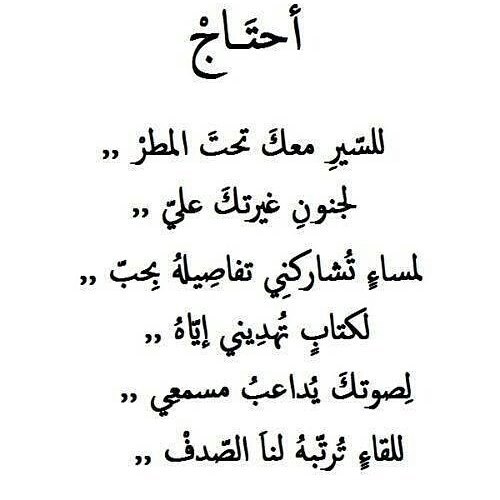 أحتَـاجْ
للسّيرِ معكَ تحتَ المطرْ ,,
لجنونِ غيرتكَ عليّ ,,
لمساءٍ تُشاركنِي تفاصِيلهُ بِحبّ ,,
لَكتابٍ تُهدِيني إيّاهُ ,,
لِصوتكَ يُداعبُ مسمعِي ,,
للقاءٍ تُرتّبهُ لناَ الصّدفْ ,,